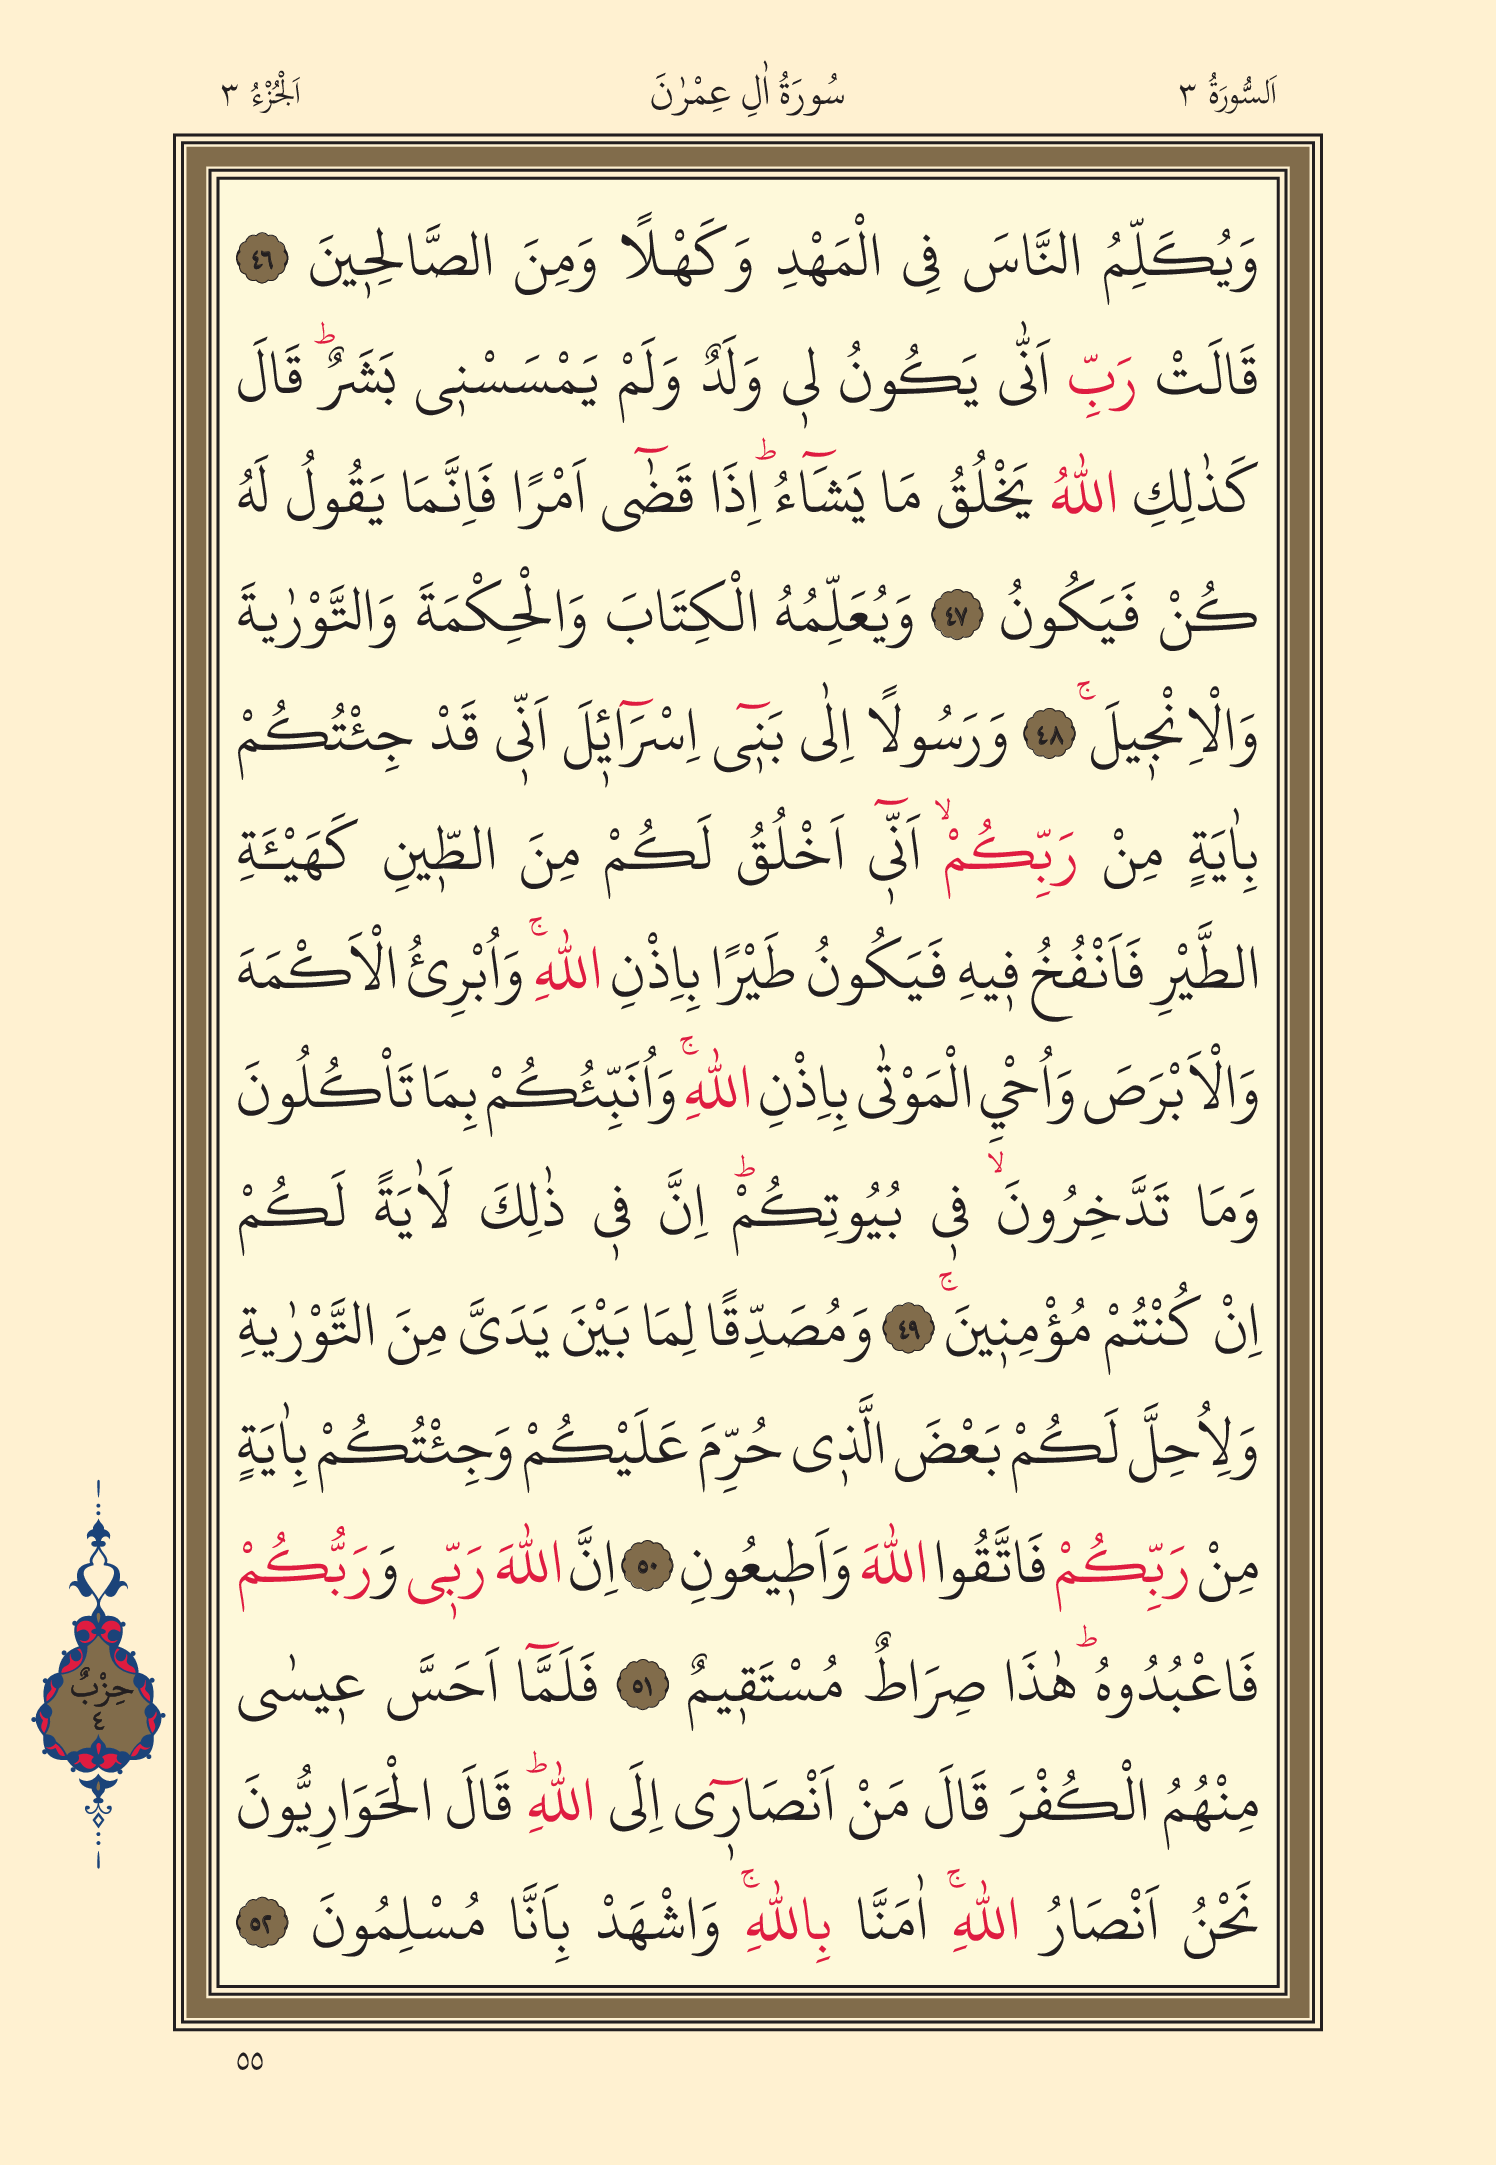 اَلسُّورَةُ ٣ سُورَةُ اٰلِ عِمْرٰنَ اَلْجُزْءُ ٣
وَيُكَلِّمُ النَّاسَ فِى الْمَهْدِ وَكَهْلًا وَمِنَ الصَّالِح۪ينَ ٤٦
قَالَتْ رَبِّ اَنّٰى يَكُونُ ل۪ى وَلَدٌ وَلَمْ يَمْسَسْن۪ى بَشَرٌۜ قَالَ
كَذٰلِكِ اللّٰهُ يَخْلُقُ مَا يَشَٓاءُۜ اِذَا قَضٰٓى اَمْرًا فَاِنَّمَا يَقُولُ لَهُ
كُنْ فَيَكُونُ ٤٧ وَيُعَلِّمُهُ الْكِتَابَ وَالْحِكْمَةَ وَالتَّوْرٰيةَ
وَالْاِنْج۪يلَۚ ٤٨ وَرَسُولًا اِلٰى بَن۪ٓى اِسْرَٓائ۪لَ اَنّ۪ى قَدْ جِئْتُكُمْ
بِاٰيَةٍ مِنْ رَبِّكُمْۙ اَنّ۪ٓى اَخْلُقُ لَكُمْ مِنَ الطّ۪ينِ كَهَيْـَٔةِ
الطَّيْرِ فَاَنْفُخُ ف۪يهِ فَيَكُونُ طَيْرًا بِاِذْنِ اللّٰهِۚ وَاُبْرِئُ الْاَكْمَهَ
وَالْاَبْرَصَ وَاُحْيِ الْمَوْتٰى بِاِذْنِ اللّٰهِۚ وَاُنَبِّئُكُمْ بِمَا تَاْكُلُونَ
وَمَا تَدَّخِرُونَۙ ف۪ى بُيُوتِكُمْۜ اِنَّ ف۪ى ذٰلِكَ لَاٰيَةً لَكُمْ
اِنْ كُنْتُمْ مُؤْمِن۪ينَۚ ٤٩ وَمُصَدِّقًا لِمَا بَيْنَ يَدَىَّ مِنَ التَّوْرٰيةِ
وَلِاُحِلَّ لَكُمْ بَعْضَ الَّذ۪ى حُرِّمَ عَلَيْكُمْ وَجِئْتُكُمْ بِاٰيَةٍ
مِنْ رَبِّكُمْ فَاتَّقُوا اللّٰهَ وَاَط۪يعُونِ ٥٠ اِنَّ اللّٰهَ رَبّ۪ى وَرَبُّكُمْ
فَاعْبُدُوهُۜ هٰذَا صِرَاطٌ مُسْتَق۪يمٌ ٥١ فَلَمَّٓا اَحَسَّ ع۪يسٰى
مِنْهُمُ الْكُفْرَ قَالَ مَنْ اَنْصَار۪ٓى اِلَى اللّٰهِۜ قَالَ الْحَوَارِيُّونَ
نَحْنُ اَنْصَارُ اللّٰهِۚ اٰمَنَّا بِاللّٰهِۚ وَاشْهَدْ بِاَنَّا مُسْلِمُونَ ٥٢
حِزْبٌ
٤
٥٥